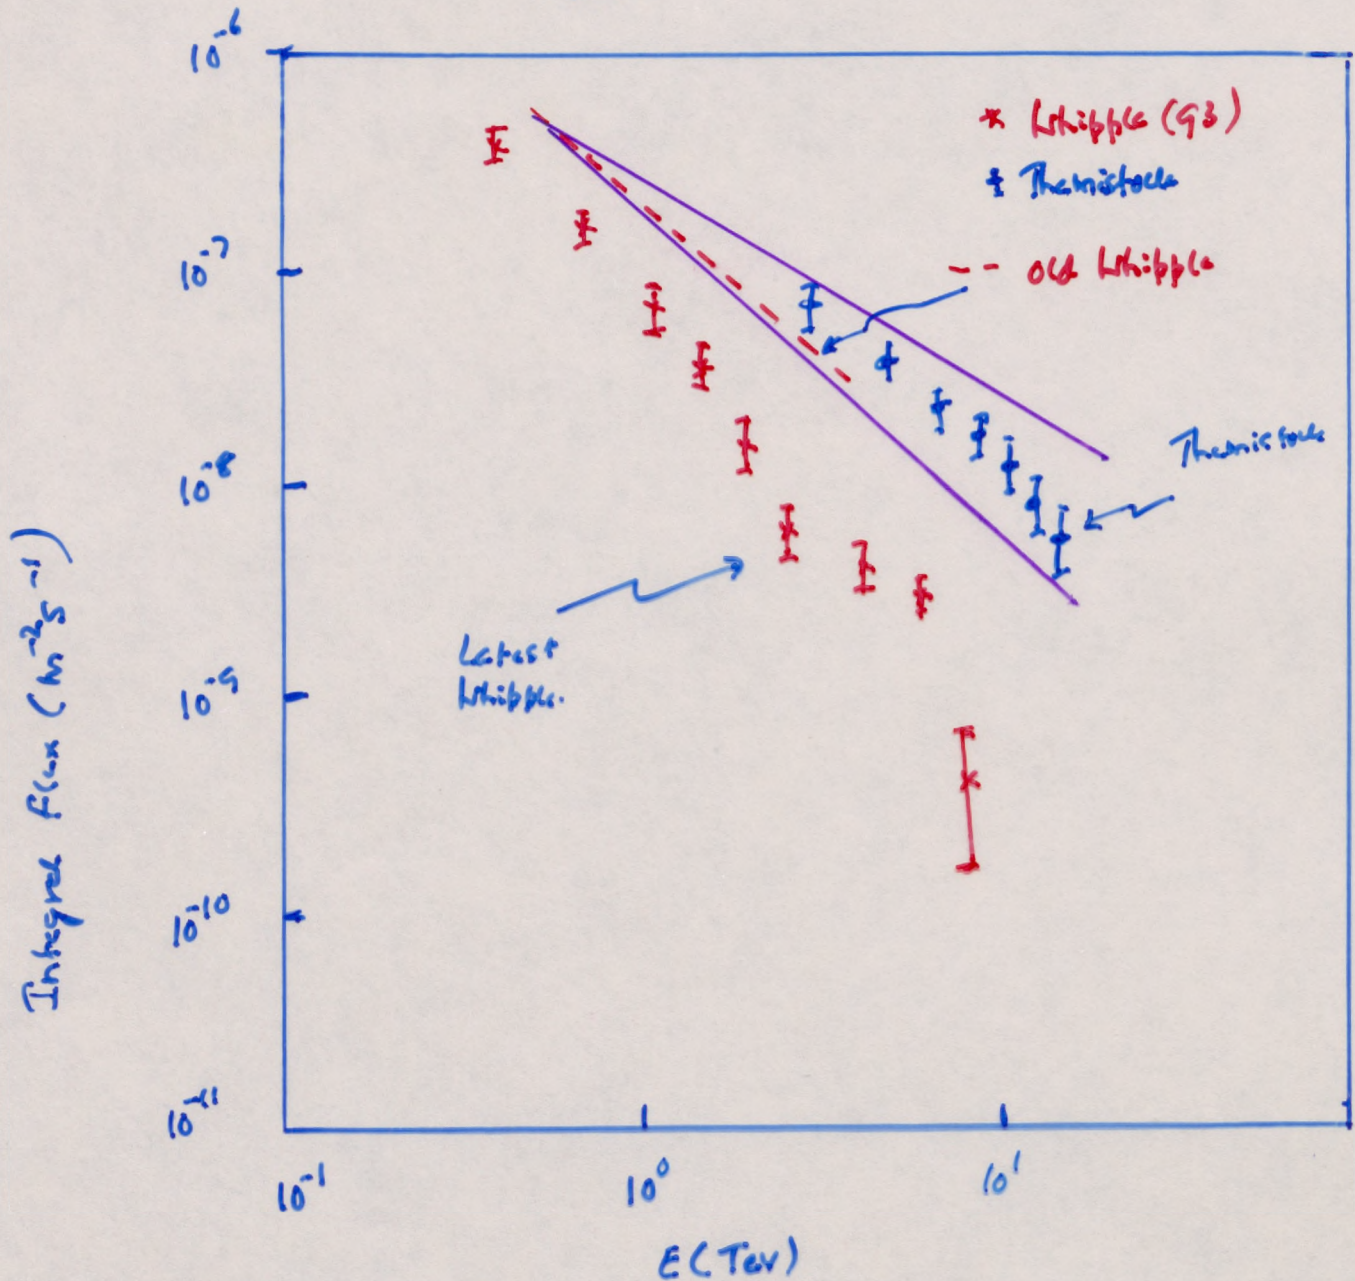 10⁻⁶
10⁻⁷
10⁻⁸
10⁻⁹
10⁻¹⁰
10⁻¹¹
Integral Flux (m⁻²s⁻¹)
* Whipple (93)
Themistocle
-- old Whipple
Themistocle
Latest
Whipple.
10⁻¹
10⁰
10¹
E (TeV)